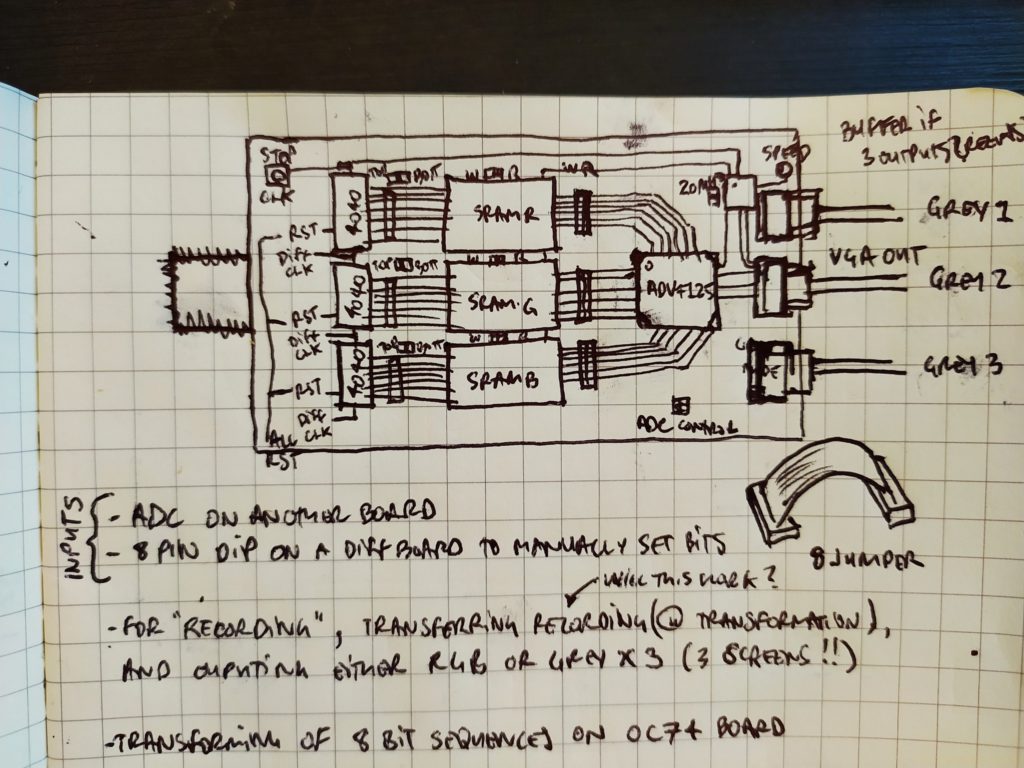 BUFFER if
3 OUTPUTS
STOP
CLK
SPEED
TOP BOTT
W R
WR
20M
4040
SRAM R
GREY 1
RST
DIFF
CLK
TOP BOTT
W R
VGA OUT
4040
SRAM G
ADV7125
GREY 2
RST
DIFF
CLK
TOP BOTT
W R
4040
SRAM B
GREY 3
RST
DIFF
CLK
ALL
RST
ADC CONTROL
8 JUMPER
INPUTS
- ADC ON ANOTHER BOARD
- 8 PIN DIP ON A DIFF BOARD TO MANUALLY SET BITS
WILL THIS WORK?
- FOR "RECORDING", TRANSFERRING RECORDING (@ TRANSFORMATION),
AND OUPUTING EITHER RGB OR GREY X 3 (3 SCREENS!!)
- TRANSFORMING OF 8 BIT SEQUENCES ON OC74 BOARD